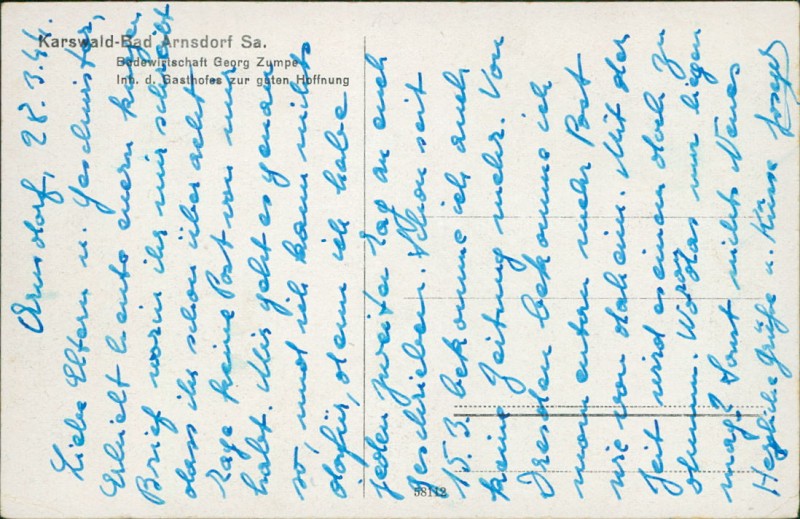 Karswald-Bad Arnsdorf Sa.
Badewirtschaft Georg Zumpe
Inh. d. Gasthofes zur guten Hoffnung
Arnsdorf, 28.3.44.
Liebe Eltern u. Geschwister,
Erhielt heute euern kargen
Brief worin ihr mir schreibt
dass ihr schon über acht
Tage keine Post von mir
habt. Mir geht es genau
so, und ich kann nichts
dafür, denn ich habe
jeden zweiten Tag an euch
geschrieben. Schon seit
15.3. bekomme ich auch
keine Zeitung mehr. Von
Dresden bekomme ich
momentan mehr Post
wie von daheim. Mit der
Zeit wird es einem doch zu
dumm. Woran das nur liegen
mag? Sonst nichts Neues
Herzliche Grüße u. Küsse Josef
58112